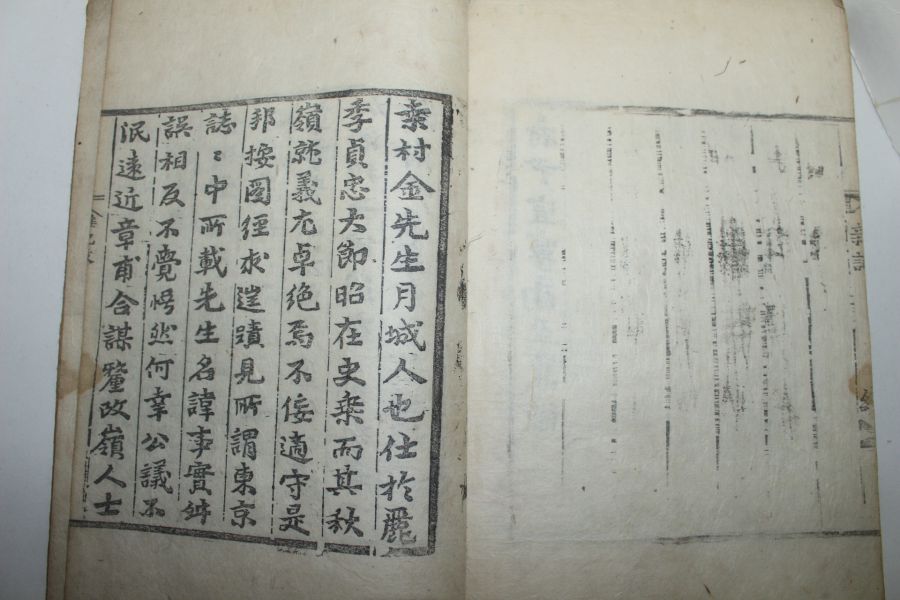 桑村金先生月城人也仕於麗
季貞忠大節昭在史乘而其秋
嶺就義尤卓絶焉不佞適守是
邦按圖經求遺蹟見所謂東京
誌〻中所載先生名諱事實舛
誤相反不覺愕然何幸公議不
泯遠近章甫合謀釐改嶺人士